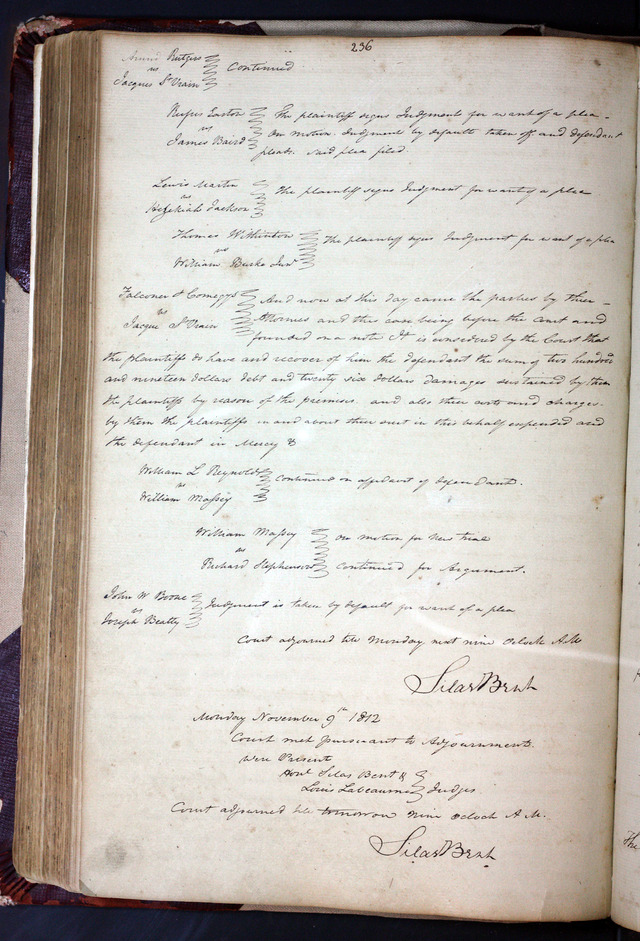 236
Rutgers
vs
Jacques St Vrain
Continued
Rufus Easton
vs
James Baird
The plaintiff signs Judgment for want of a plea -
on motion Judgment by default taken off and defendant
pleads. said plea filed
Lewis Martin
vs
Hezekiah Jackson
The plaintiff signs Judgment for want of a plea
Thomas
vs
William Burke Junr
The plaintiff signs Judgment for want of a plea
Falconer & Comegys
vs
Jacque St Vrain
And now at this day came the parties by their -
Attornies and the case being before the court and
founded on a note It is considered by the Court that
the plaintiffs do have and recover of him the defendant the sum of two hundred
and nineteen dollars debt and twenty six dollars damages sustained by them
the plaintiffs by reason of the premises. and also their costs and charges
by them the plaintiffs in and about their suit in this behalf expended and
the defendant in Mercy &
William L Reynolds
vs
William Massey
Continued on affidavit of defendant.
William Massey
vs
Richard Stephenson
on motion for New trial
continued for Argument.
John W Boone
vs
Joseph Beatty
Judgment is taken by default for want of a plea
Court adjourned till Monday next nine Oclock A.M
Silas Bent
Monday November 9th 1812
Court met pursuant to Adjournment.
Were Present
Honl Silas Bent &
Louis Labeaume
Judges
Court adjourned till tomorrow nine oclock A.M.
Silas Bent
The